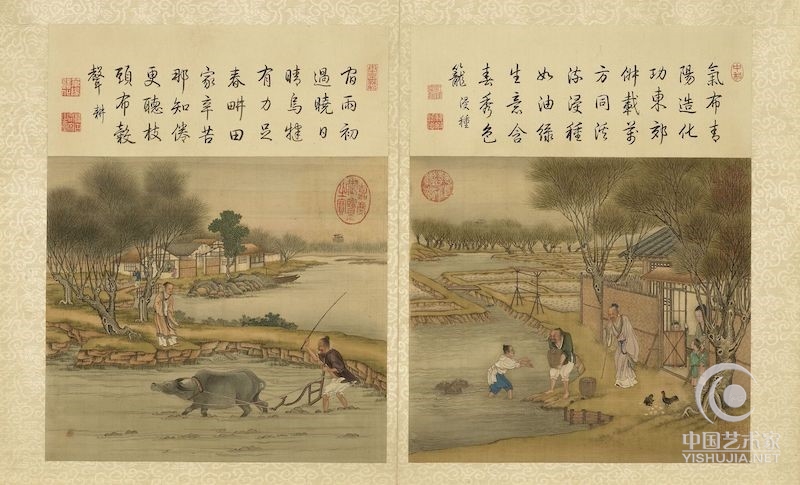 氣布青
陽造化
功東郊
俶載萬
方同溪
流浸種
如油綠
生意含
春秀色
籠 浸種
宿雨初
過曉日
晴烏犍
有力足
春畊田
家辛苦
那知倦
更聽枝
頭布穀
聲 耕
中国艺术家
YISHUJIA.NET